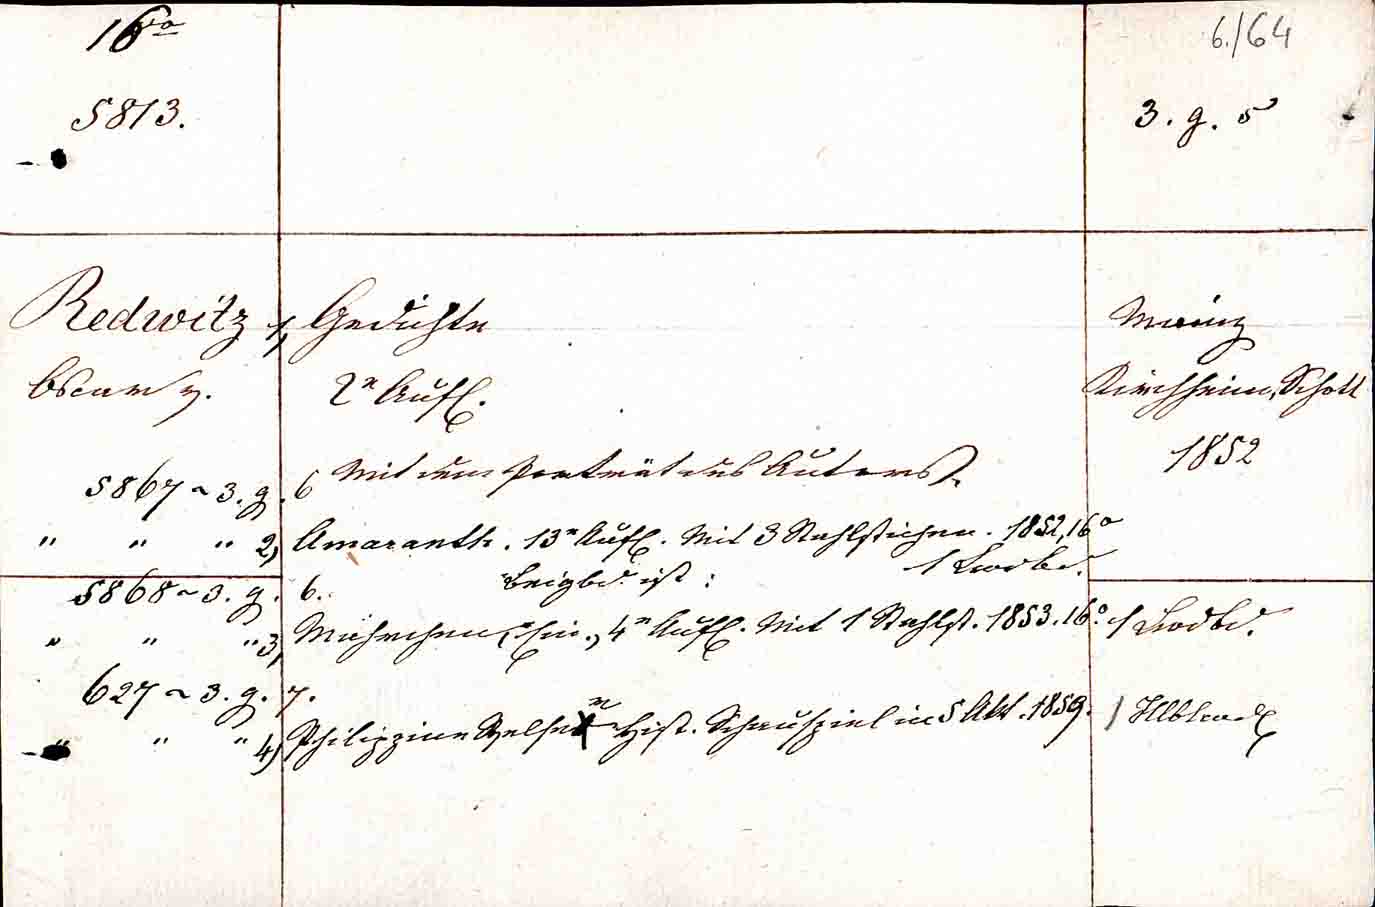 16º
6./64
5813.
3. g. 5
Redwitz 1, Gedichte
Mainz
Oscar v.
2ᵉ Aufl.
Kirchheim, Schott
1852
Mit dem Porträt des Autors.
5867 ~ 3. g. 6
" " " 2, Amaranth. 13ᵉ Aufl. Mit 3 Stahlstichen. 1852, 16º
1 Lwdbd.
5868 ~ 3. g. 6. Beigbd. ist :
" " " 3, Mährchen, Ein., 4ᵉ Aufl. Mit 1 Stahlst. 1853. 16º 1 Lwdbd.
627 ~ 3. g. 7.
" " " 4) Philippine Welser Hist. Schauspiel in 5 Akt. 1859. 1 Hlblwd